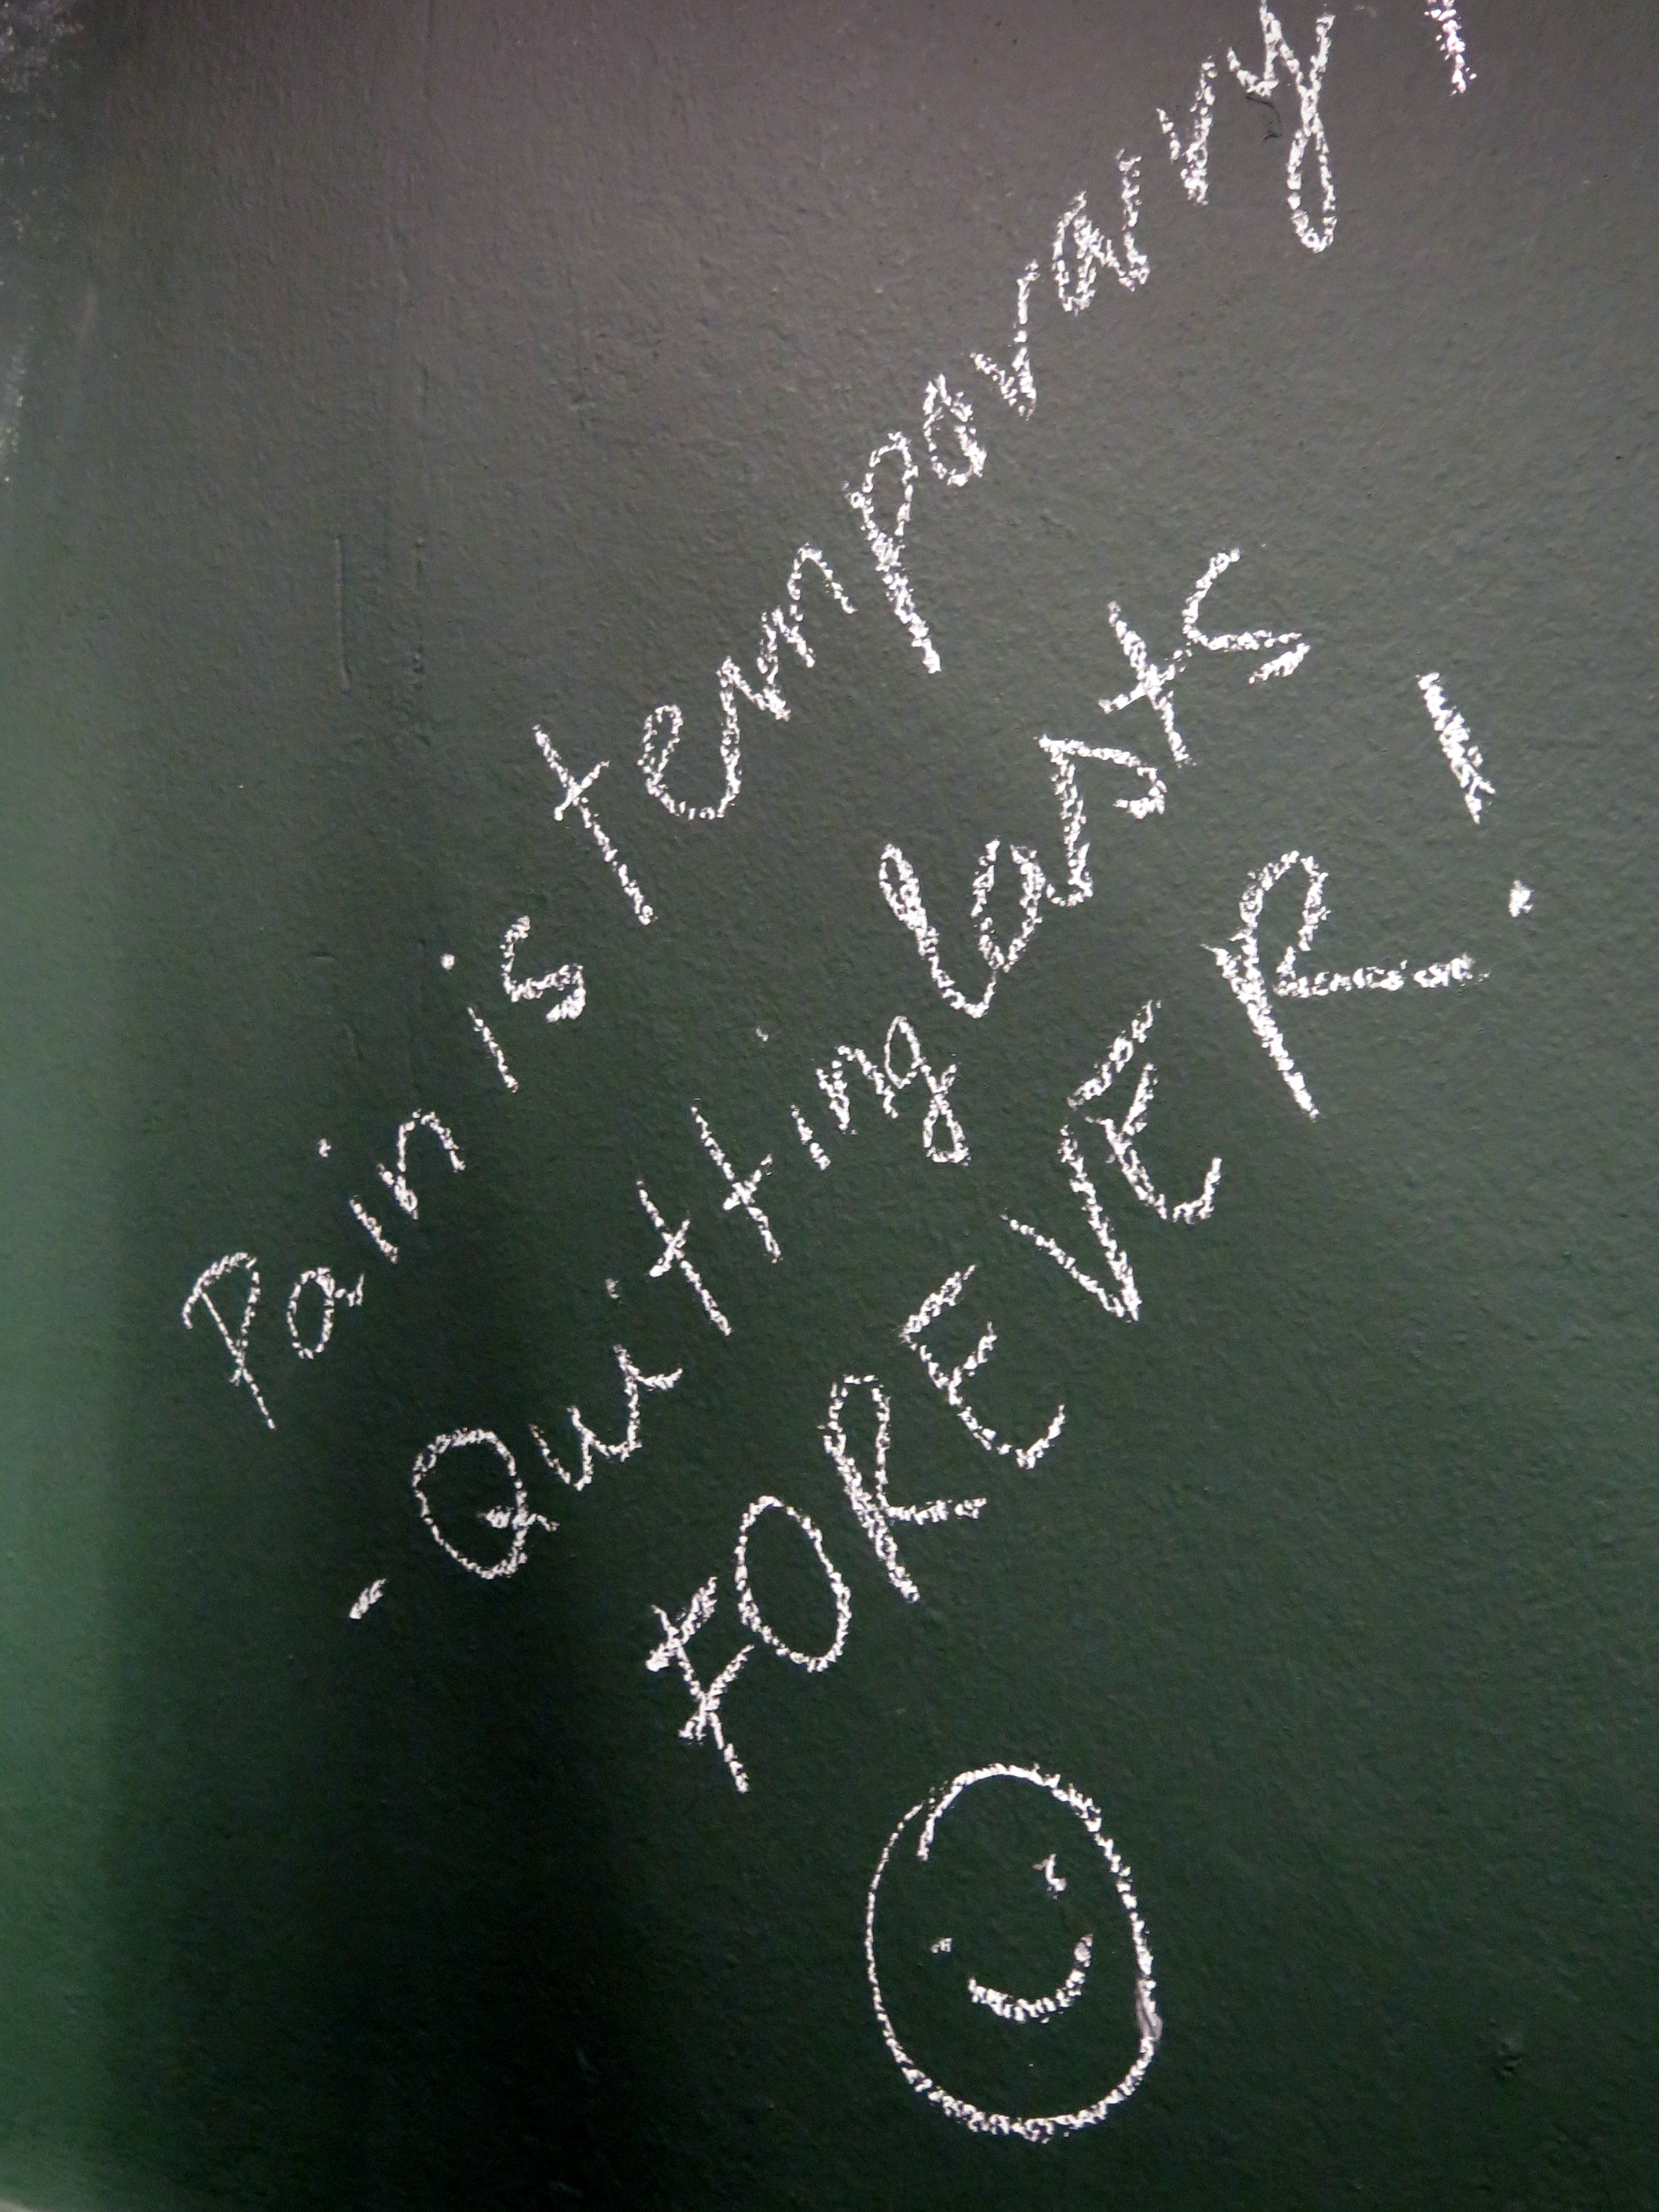 Pain is temporary,
- Quitting lasts
FOREVER!